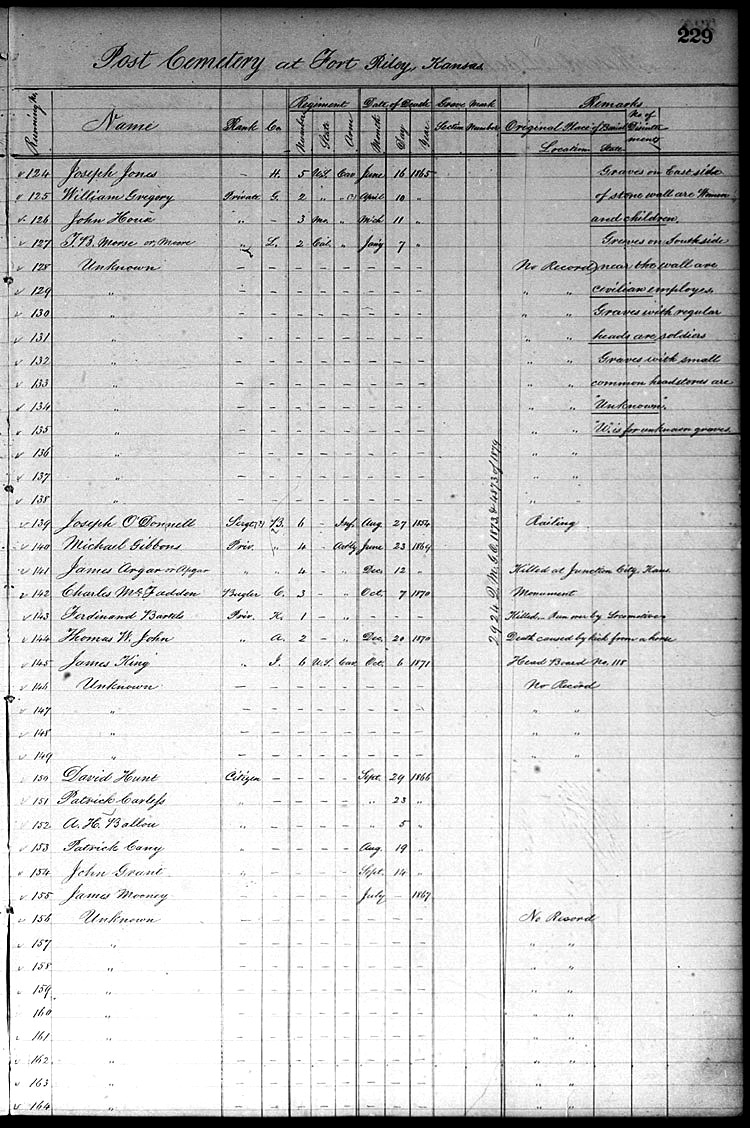 229
Post Cemetery at Fort Riley, Kansas
Regiment Date of Death Grave Mark Remarks
Name Rank Co. Number State Arm Month Day Year Section Number Original Place of Burial No. of Disinterment
Location State
124 Joseph Jones — H. 5 U.S. Cav June 16 1865 Graves on East side
125 William Gregory Private G. 2 " " April 10 " of stone wall are Women
126 John Houk " — 3 Mo. " Mch 11 " and children.
127 T. B. Morse or Moore " L. 2 Col. " Jan'y 7 " Graves on South side
128 Unknown — — — — — — — — No Record near the wall are
129 " — — — — — — — — " " civilian employes.
130 " — — — — — — — — " " Graves with regular
131 " — — — — — — — — " " heads are soldiers
132 " — — — — — — — — " " Graves with small
133 " — — — — — — — — " " common headstones are
134 " — — — — — — — — " " "Unknown".
135 " — — — — — — — — " " "U" is for unknown graves.
136 " — — — — — — — — " "
137 " — — — — — — — — " "
138 " — — — — — — — — " "
139 Joseph O'Donnell Sergt B. 6 — Inf. Aug 27 1854 Railing
140 Michael Gibbons Priv. " 4 — Art'y June 23 1869
141 James Argar or Apgar " " 4 — " Dec. 12 " Killed at Junction City, Kans.
142 Charles McFadden Bugler C. 3 — " Oct. 7 1870 Monument
143 Ferdinand Bartels Priv. K. 1 — " — — — Killed — Run over by Locomotive
144 Thomas W. John " A. 2 — " Dec. 20 1870 Death caused by kick from a horse
145 James King " I. 6 U.S. Cav. Oct. 6 1871 Head Board No. 118
2924 Q. M. G. O. 1873 & 4873 of 1879
146 Unknown — — — — — — — — No Record
147 " — — — — — — — — " "
148 " — — — — — — — — " "
149 " — — — — — — — — " "
150 David Hunt Citizen — — — — Sept. 29 1866
151 Patrick Carless " — — — — " 23 "
152 A. H. Ballou " — — — — " 5 "
153 Patrick Cany " — — — — Aug. 19 "
154 John Grant " — — — — Sept. 14 "
155 James Mooney — — — — July — 1867
156 Unknown — — — — — — — — No Record
157 " — — — — — — — — " "
158 " — — — — — — — — " "
159 " — — — — — — — — " "
160 " — — — — — — — — " "
161 " — — — — — — — — " "
162 " — — — — — — — — " "
163 " — — — — — — — — " "
164 " — — — — — — — — " "